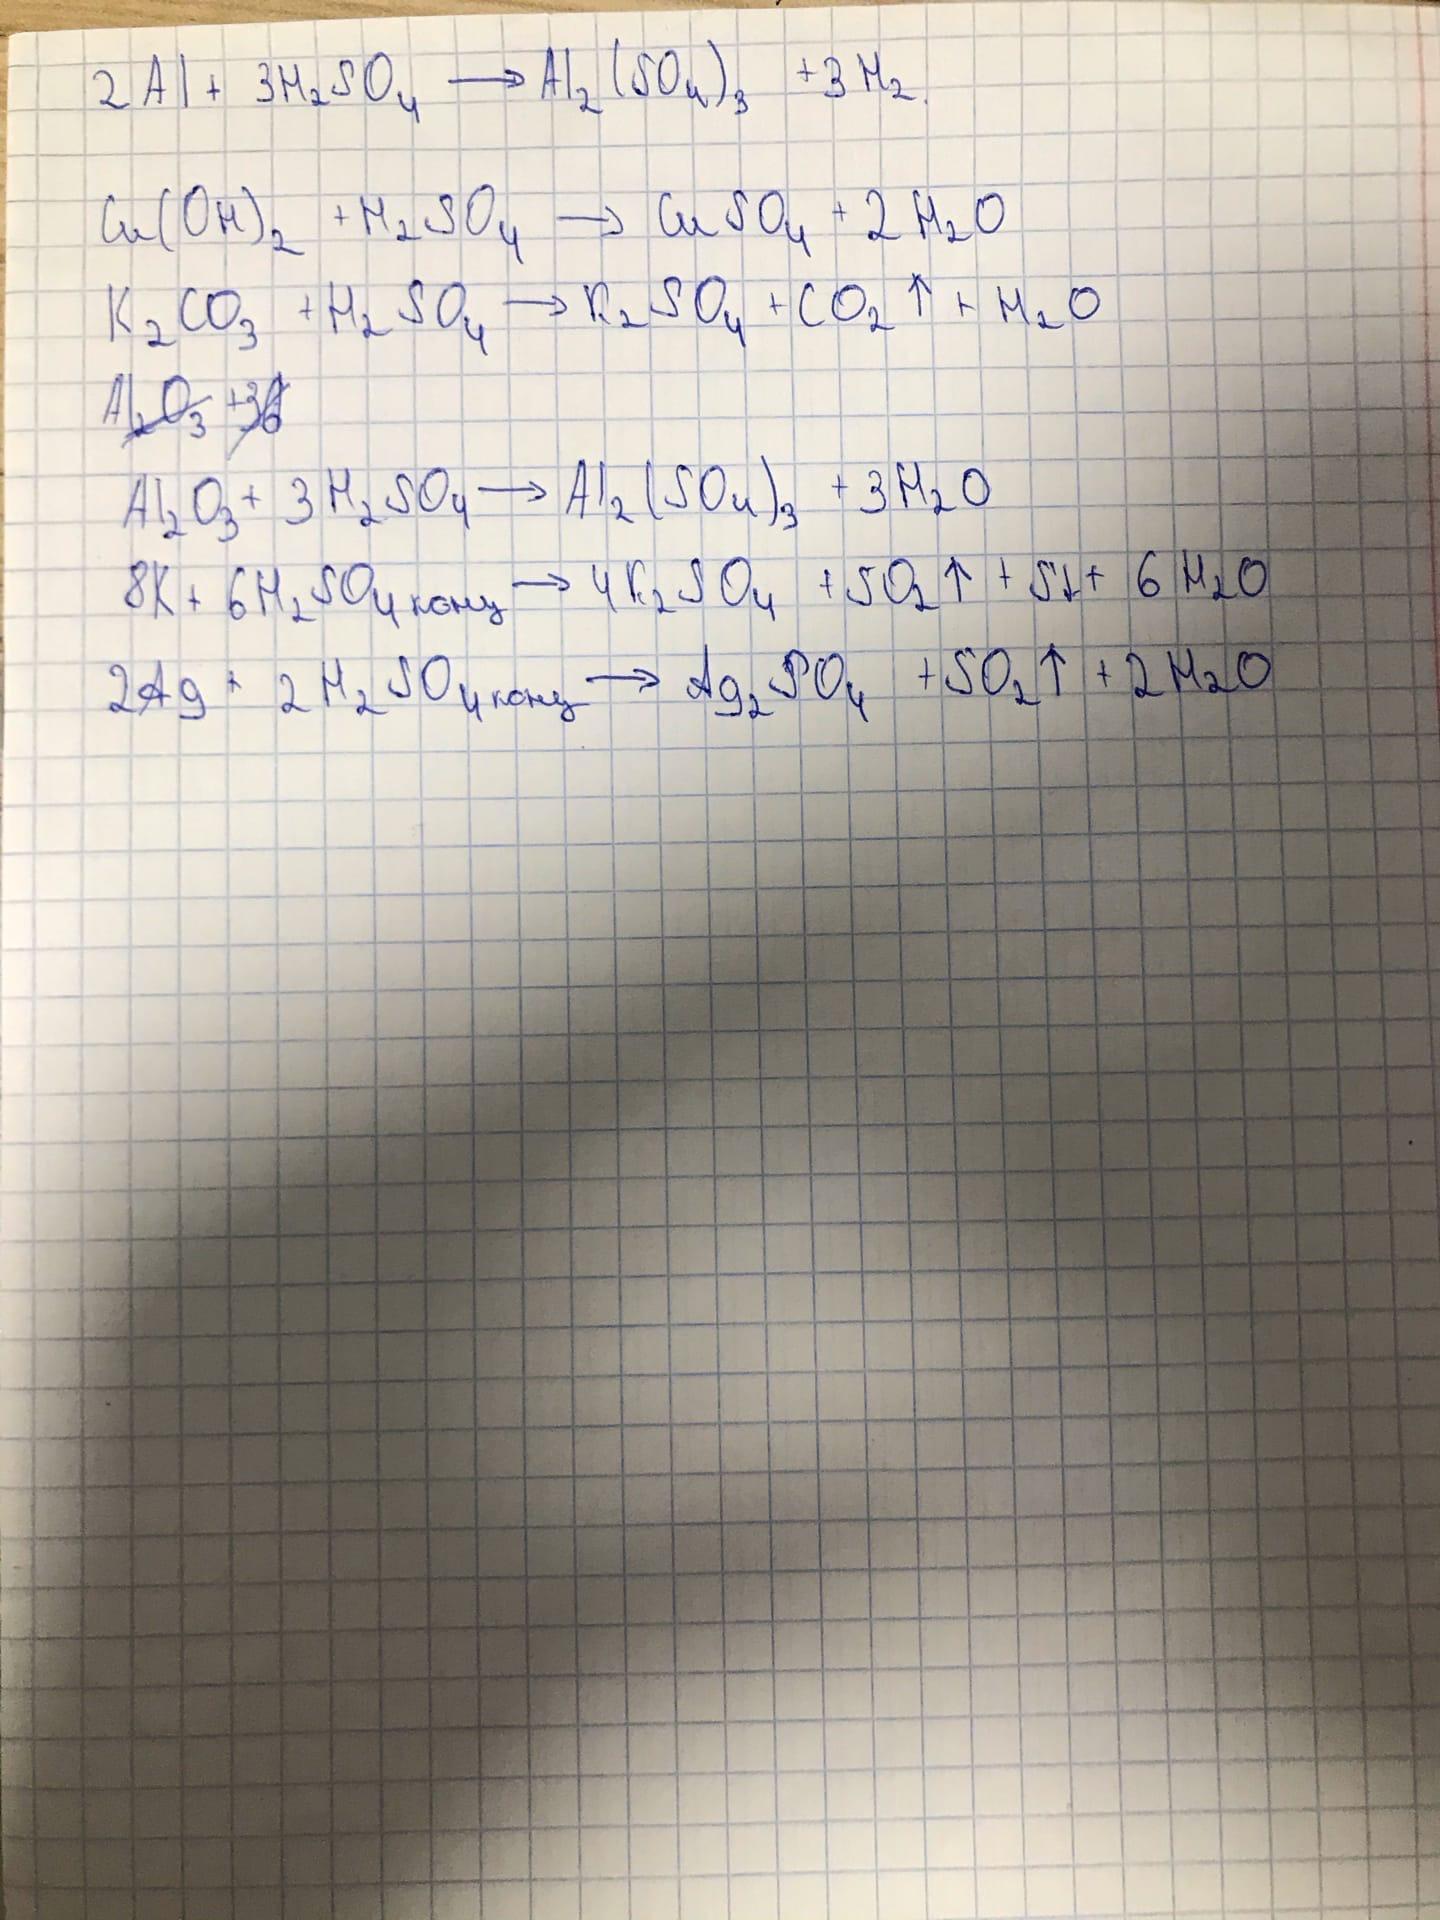 2Al + 3H₂SO₄ → Al₂(SO₄)₃ + 3H₂
Cu(OH)₂ + H₂SO₄ → CuSO₄ + 2H₂O
K₂CO₃ + H₂SO₄ → K₂SO₄ + CO₂↑ + H₂O
Al₂O₃ + 3
Al₂O₃ + 3H₂SO₄ → Al₂(SO₄)₃ + 3H₂O
8K + 6H₂SO₄ конц → 4K₂SO₄ + SO₂↑ + S↓ + 6H₂O
2Ag + 2H₂SO₄ конц → Ag₂SO₄ + SO₂↑ + 2H₂O